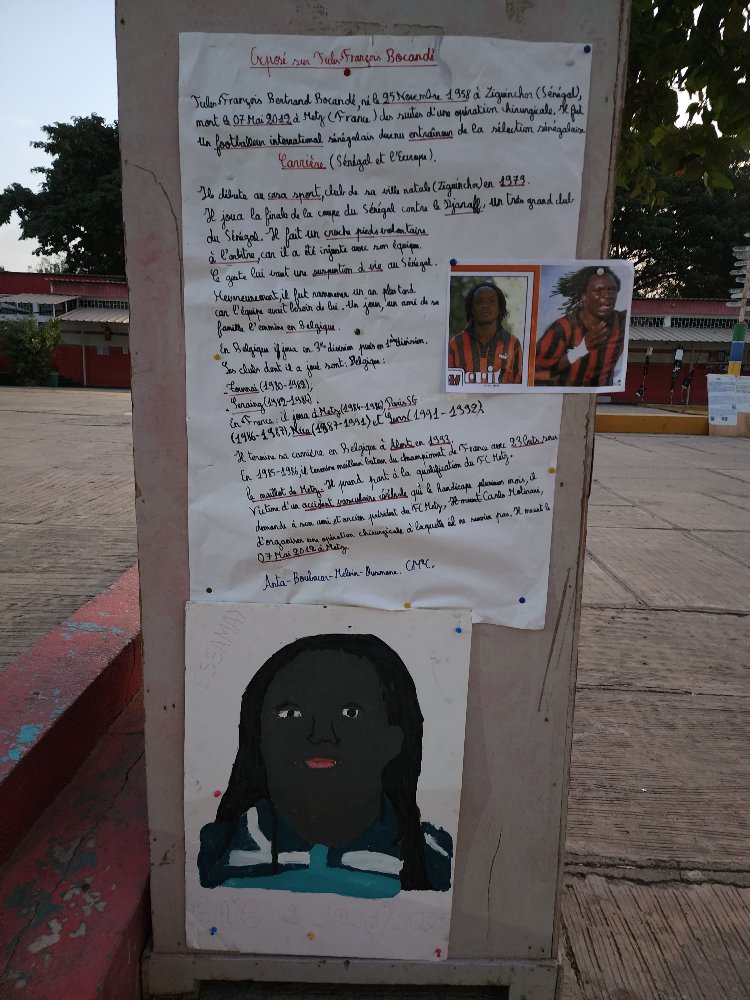 Exposé sur Jules François Bocandé
Jules François Bertrand Bocandé, né le 25 Novembre 1958 à Ziguinchor (Sénégal),
mort le 07 Mai 2012 à Metz (France) des suites d'une opération chirurgicale. Il fut
un footballeur international sénégalais devenu entraîneur de la sélection sénégalaise
Carrière (Sénégal et l'Europe).
Il débute au casa sport, club de sa ville natale (Ziguinchor) en 1979.
Il joua la finale de la coupe du Sénégal contre le Djaraff, un très grand club
du Sénégal. Il fait un croche pieds volontaire
à l'arbitre, car il a été injuste avec son équipe.
Ce geste lui vaut une suspention à vie au Sénégal.
Heureusement, il fut rammener un an plus tard
car l'équipe avait besoin de lui. Un jour, un ami de sa
famille l'emmène en Belgique.
En Belgique il joua en 3e division puis en 1ère division.
Ses clubs dont il a joué sont: Belgique:
. Tournai (1980-1982),
. Seraing (1982-1984).
En France: il joua à Metz (1984-1986), Paris SG
(1986-1987), Nice (1987-1991) et Lens (1991-1992).
Il termine sa carrière en Belgique à Alost en 1993.
En 1985-1986, il termine meilleur buteur du championnat de France avec 23 buts sous
le maillot de Metz. Il prend part à la qualification du FC Metz.
Victime d'un accident vasculaire cérébrale qui le handicape plusieurs mois, il
demande à son ami et ancien président du FC Metz, Carlo Molinari,
d'organiser une opération chirurgicale à laquelle il ne survie pas. Il meurt le
07 Mai 2012 à Metz.
Anta-Boubacar-Melvin-Ousmane. CM2C.
ESSAMAY